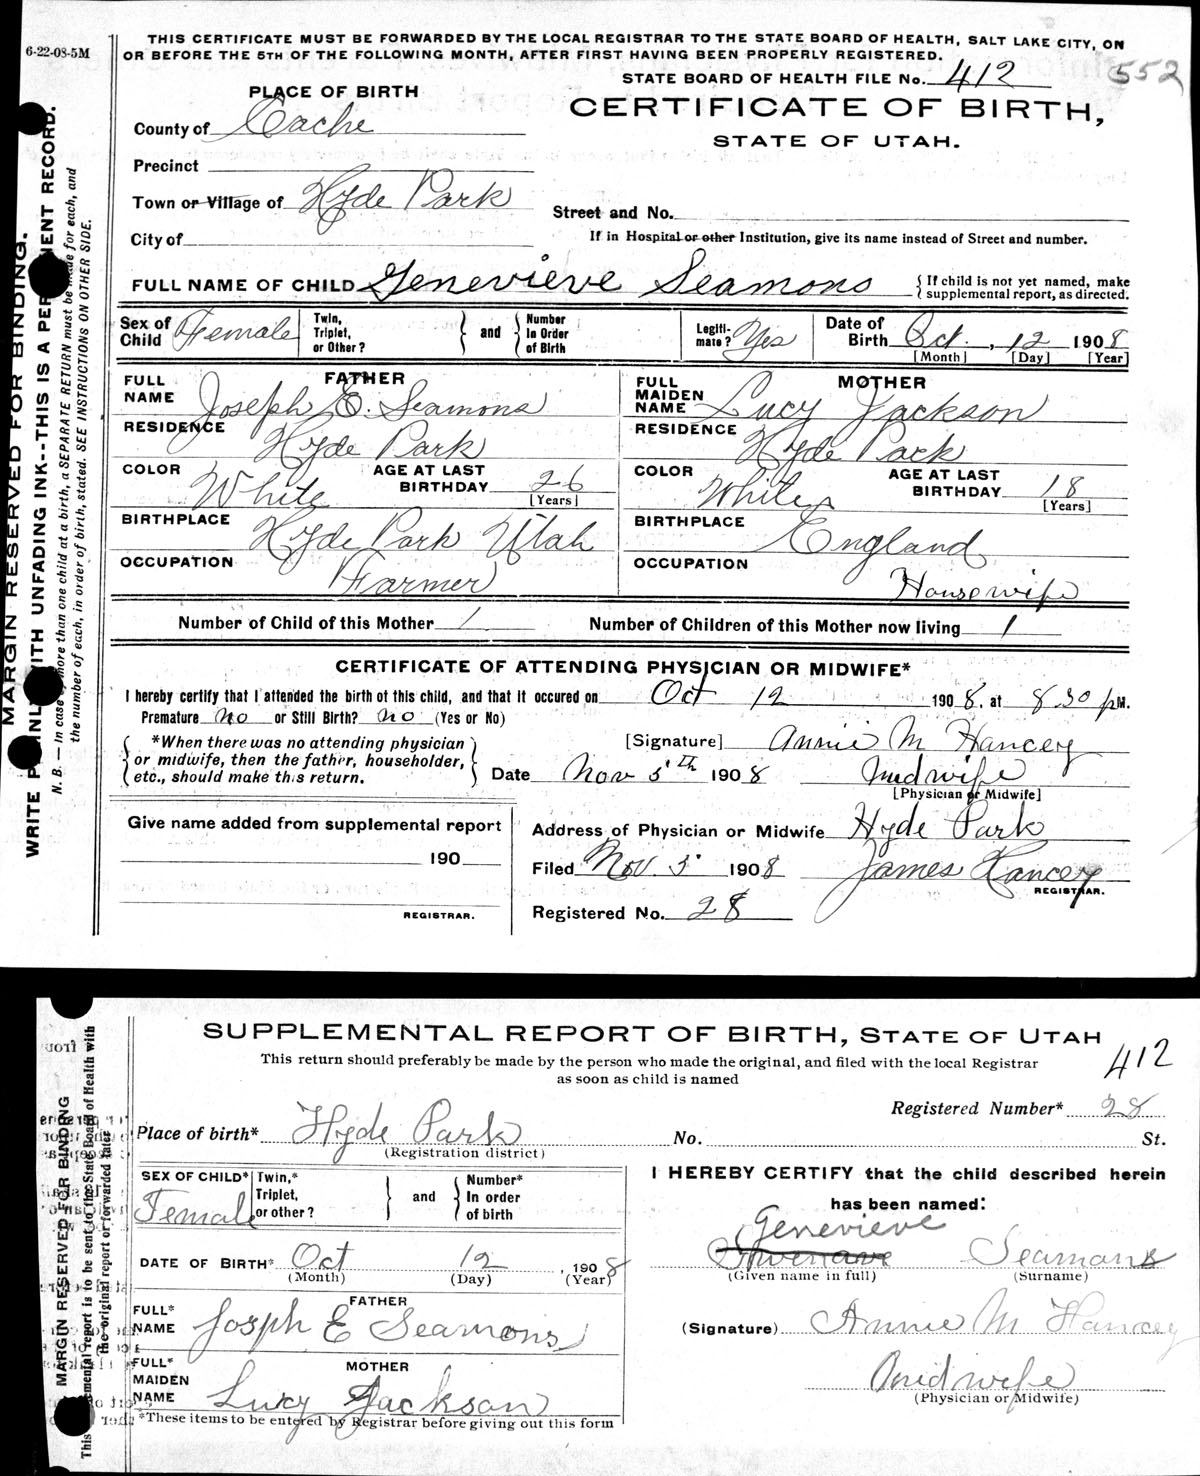 6-22-08-5M
THIS CERTIFICATE MUST BE FORWARDED BY THE LOCAL REGISTRAR TO THE STATE BOARD OF HEALTH, SALT LAKE CITY, ON
OR BEFORE THE 5TH OF THE FOLLOWING MONTH, AFTER FIRST HAVING BEEN PROPERLY REGISTERED.
STATE BOARD OF HEALTH FILE No. 412
552
PLACE OF BIRTH
CERTIFICATE OF BIRTH,
STATE OF UTAH.
County of Cache
Precinct
Town or Village of Hyde Park
Street and No.
City of
If in Hospital or other Institution, give its name instead of Street and number.
FULL NAME OF CHILD Genevieve Seamons {If child is not yet named, make
supplemental report, as directed.
Sex of Child Female
Twin, Triplet, or Other? } and { Number In Order of Birth
Legiti-mate? Yes
Date of Birth Oct. , 12 1908
[Month] [Day] [Year]
FATHER
FULL NAME Joseph E. Seamons
RESIDENCE Hyde Park
COLOR White AGE AT LAST BIRTHDAY 26 [Years]
BIRTHPLACE Hyde Park Utah
OCCUPATION Farmer
MOTHER
FULL MAIDEN NAME Lucy Jackson
RESIDENCE Hyde Park
COLOR White AGE AT LAST BIRTHDAY 18 [Years]
BIRTHPLACE England
OCCUPATION Housewife
Number of Child of this Mother 1 Number of Children of this Mother now living 1
CERTIFICATE OF ATTENDING PHYSICIAN OR MIDWIFE*
I hereby certify that I attended the birth of this child, and that it occured on Oct 12 1908. at 8.30 pM.
Premature no or Still Birth? no (Yes or No)
{ *When there was no attending physician
or midwife, then the father, householder,
etc., should make this return. }
[Signature] Annie M Hancey
Date Nov 5th 1908 Midwife
[Physician or Midwife]
Give name added from supplemental report
190
REGISTRAR.
Address of Physician or Midwife Hyde Park
Filed Nov. 5 1908 James Hancey
REGISTRAR.
Registered No. 28
MARGIN RESERVED FOR BINDING.
WRITE PLAINLY WITH UNFADING INK--THIS IS A PERMANENT RECORD.
N. B. — In case of more than one child at a birth, a SEPARATE RETURN must be made for each, and
the number of each, in order of birth, stated. SEE INSTRUCTIONS ON OTHER SIDE.
SUPPLEMENTAL REPORT OF BIRTH, STATE OF UTAH
This return should preferably be made by the person who made the original, and filed with the local Registrar
as soon as child is named
412
Registered Number* 28
Place of birth* Hyde Park No. St.
(Registration district)
SEX OF CHILD* Female
Twin,* Triplet, or other? } and { Number* In order of birth
I HEREBY CERTIFY that the child described herein
has been named:
Genevieve
Seamons
(Given name in full) (Surname)
DATE OF BIRTH* Oct 12 , 1908
(Month) (Day) (Year)
FATHER
FULL* NAME Josph E Seamons
(Signature) Annie M Hancey
MOTHER
FULL* MAIDEN NAME Lucy Jackson
Midwife
(Physician or Midwife)
*These items to be entered by Registrar before giving out this form
MARGIN RESERVED FOR BINDING